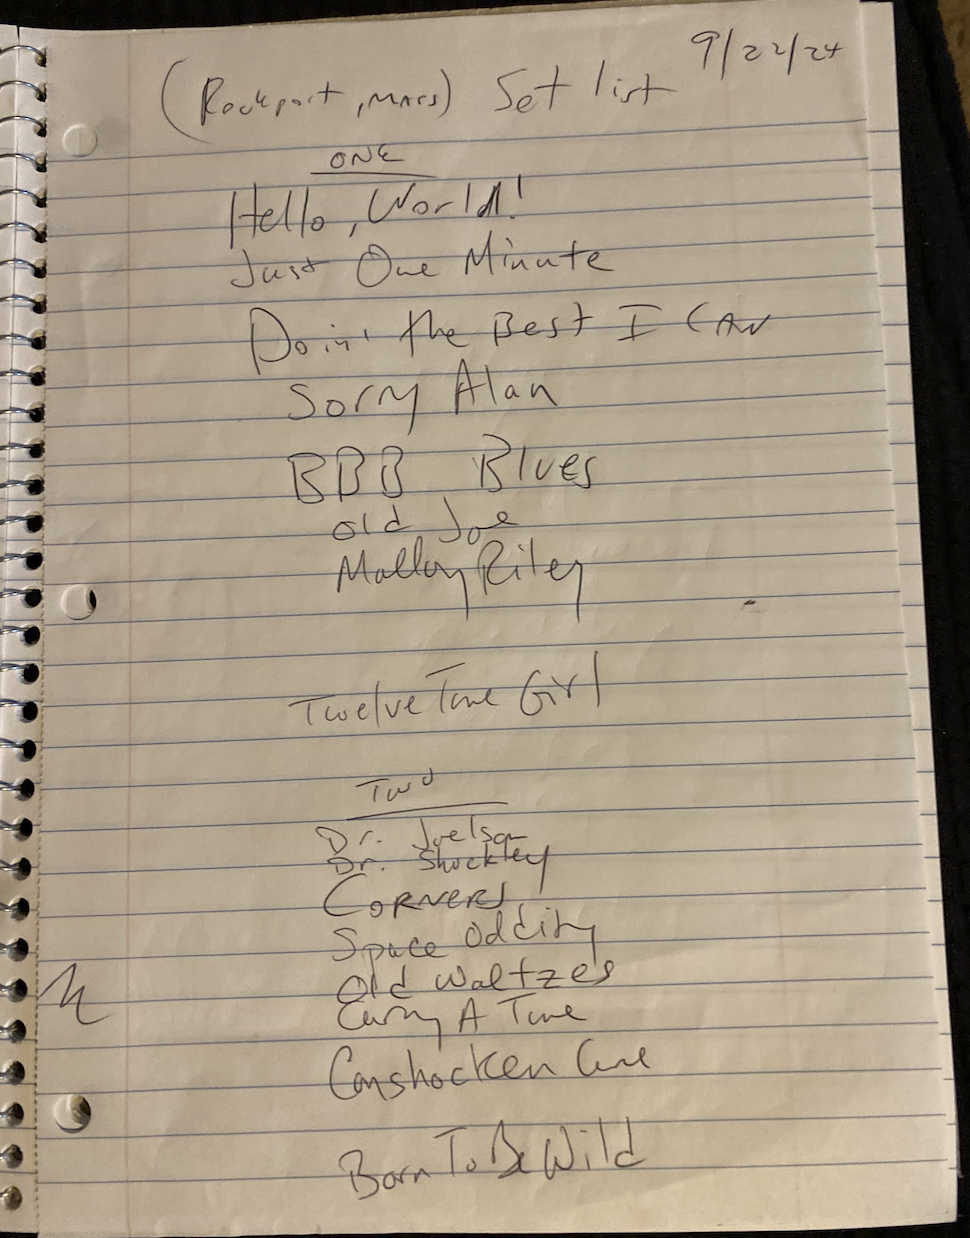 9/22/24
(Rockport, Mass) Set list
ONE
Hello, World!
Just One Minute
Doin' the Best I CAN
Sorry Alan
BBB Blues
Old Joe
Malloy Riley
Twelve Tone Girl
Two
Dr. Joelson
Dr. Shockley
CORNERS
Space Oddity
Old Waltzes
Carry A Tune
Conshocken
Born To Be Wild